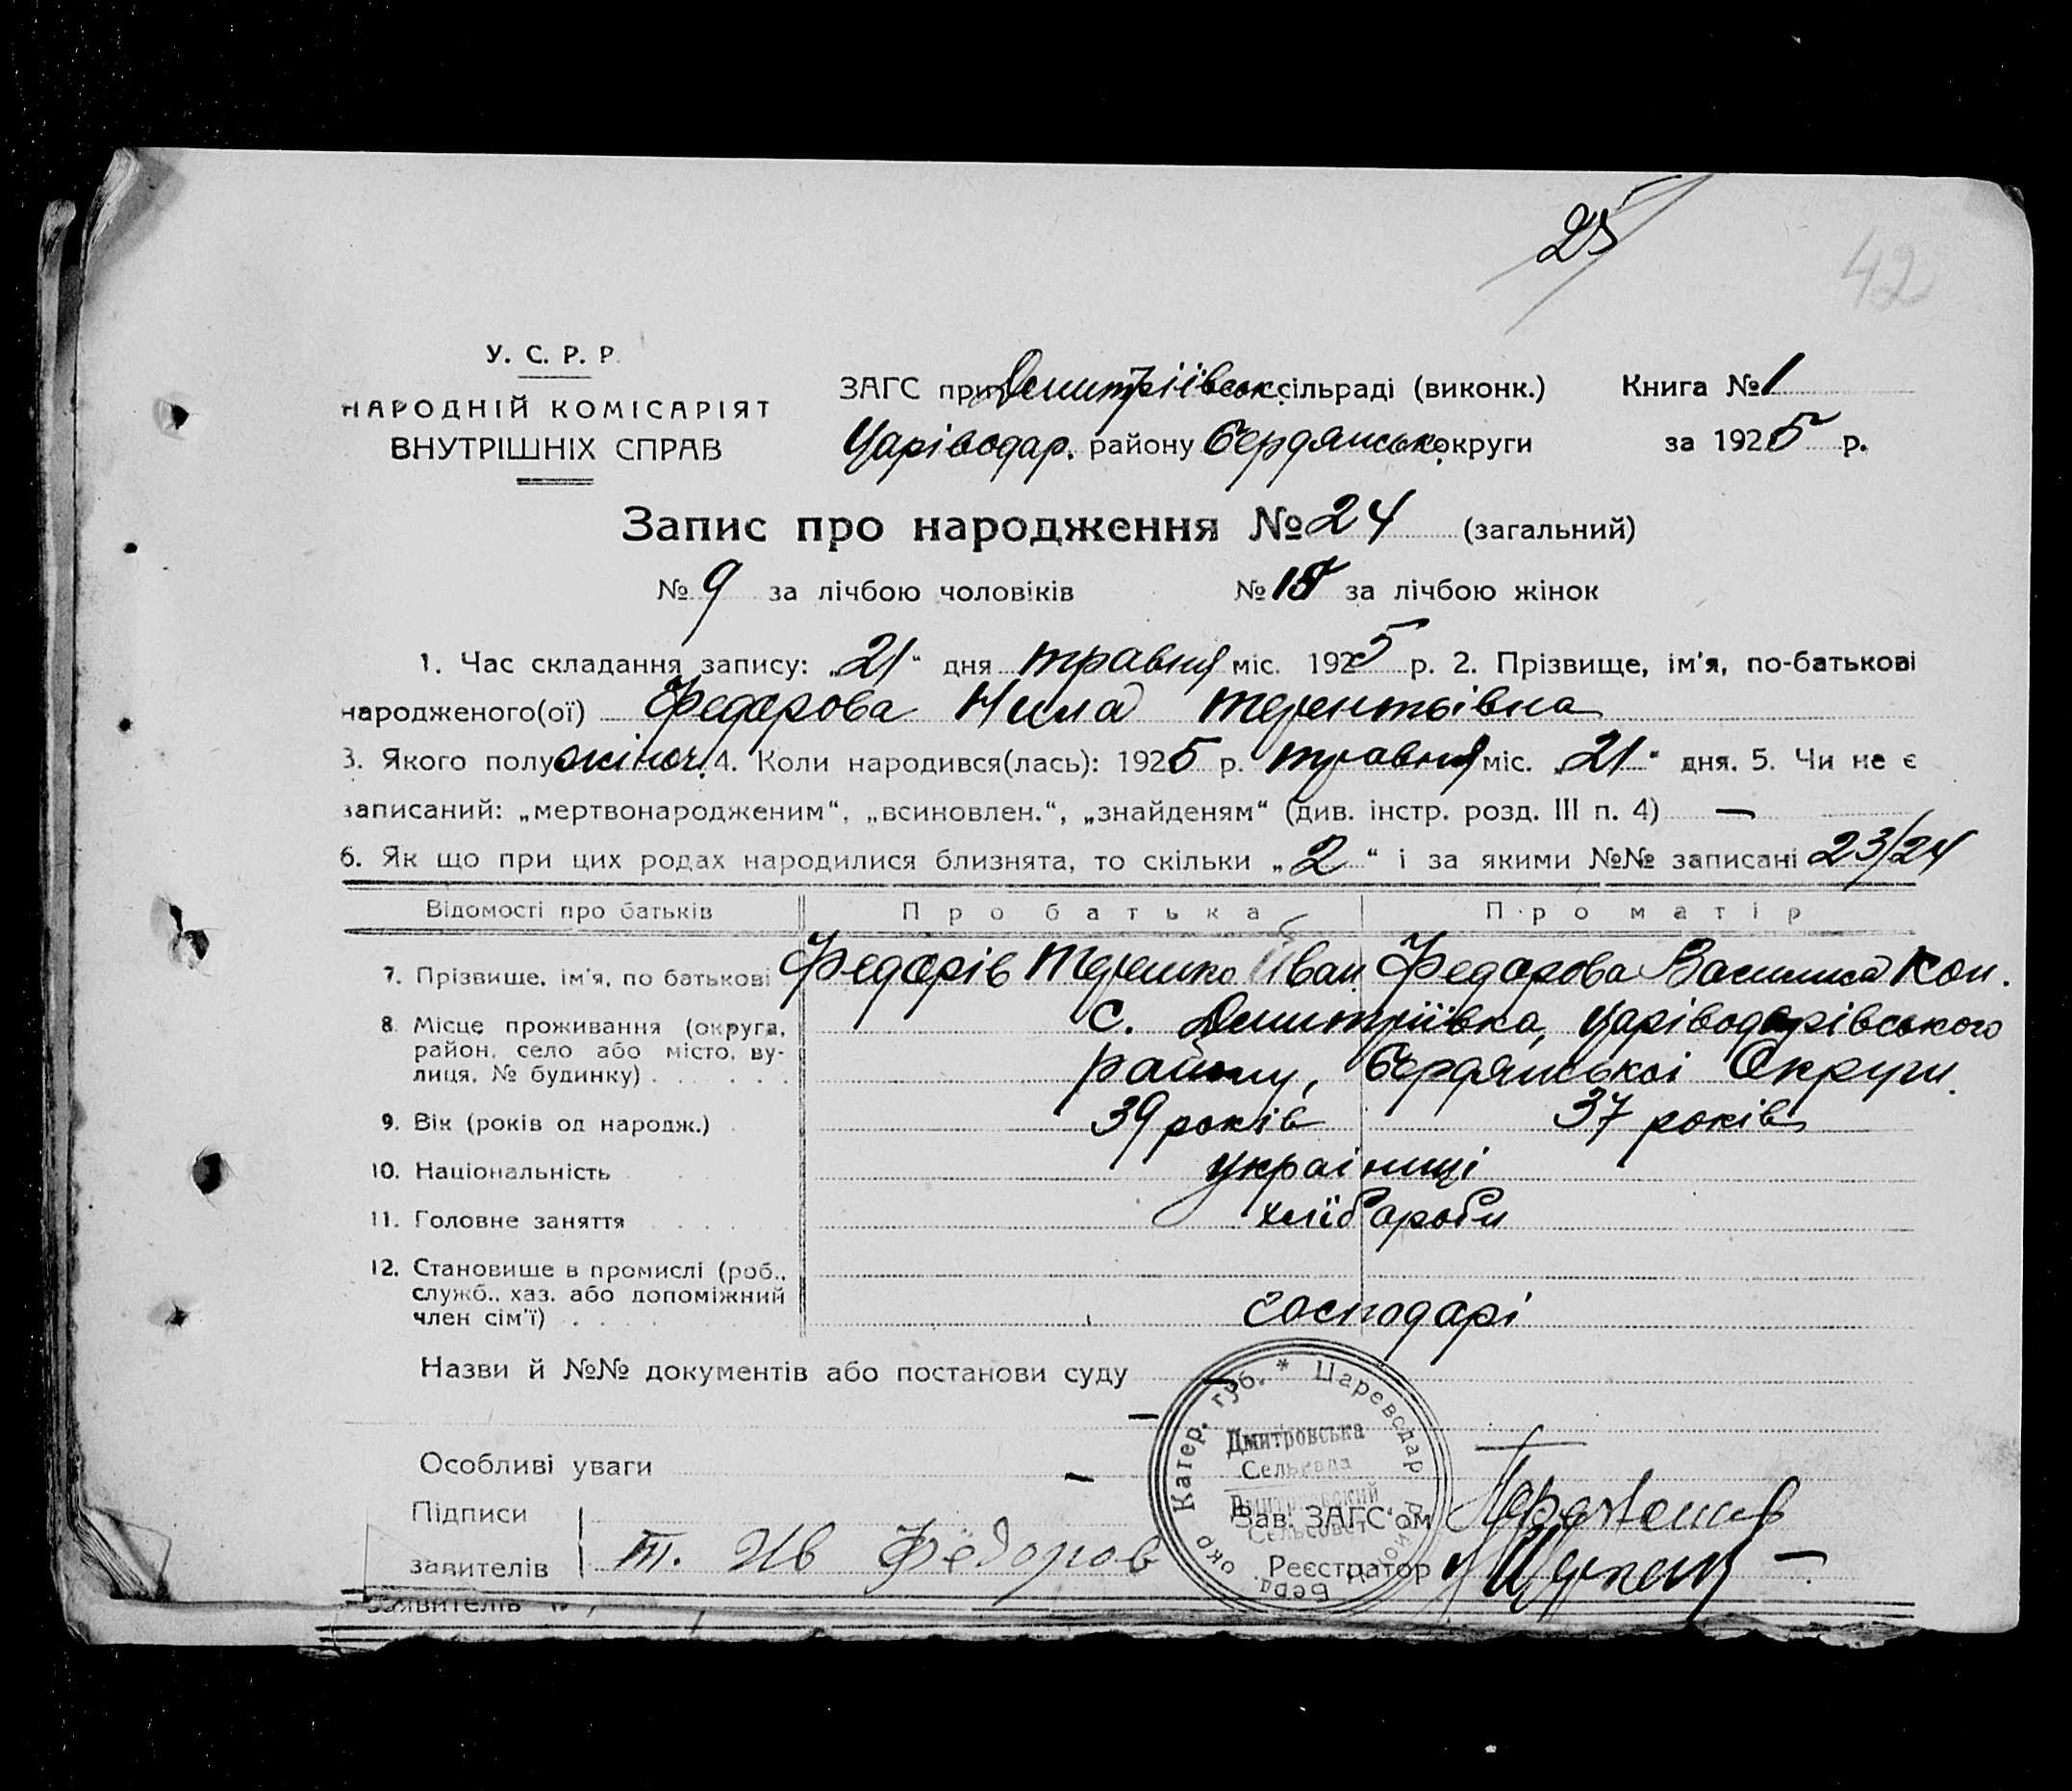 25
42
У. С. Р. Р.
НАРОДНІЙ КОМІСАРІЯТ
ВНУТРІШНІХ СПРАВ
ЗАГС при Дмитріївськ. сільраді (виконк.) Книга № 1
Царіводар. району Бердянськ. округи за 1925 р.
Запис про народження № 24 (загальний)
№ 9 за лічбою чоловіків № 15 за лічбою жінок
1. Час складання запису: „21“ дня травня міс. 1925 р. 2. Прізвище, ім'я, по-батькові
народженого(ої) Федорова Нила Терентьівна
3. Якого полу жіноч. 4. Коли народився(лась): 1925 р. травня міс. „21“ дня. 5. Чи не є
записаний: „мертвонародженим“, „всиновлен.“, „знайденям“ (див. інстр. розд. III п. 4) —
6. Як що при цих родах народилися близнята, то скільки „2“ і за якими №№ записані 23/24
Відомості про батьків Про батька Про матір
7. Прізвище, ім'я, по батькові Федорів Терешко Іван. Федорова Василиса Кон.
8. Місце проживання (округа, район, село або місто, ву-
лиця, № будинку) с. Дмитріївка, Царіводарівського
району, Бердянської Округи.
9. Вік (років од народж.) 39 років 37 років
10. Національність українці
11. Головне заняття хлібороби
12. Становище в промислі (роб.,
служб., хаз. або допоміжний
член сім'ї) господарі
Назви й №№ документів або постанови суду —
—
Особливі уваги —
Катер. губ. * Цареводар район Берд. окр
Дмитровська
Сельрада
Дмитриевский
Сельсовет
Підписи
заявителів Т. Ив Фёдоров
Зав. ЗАГС'ом
Реєстратор
заявителів